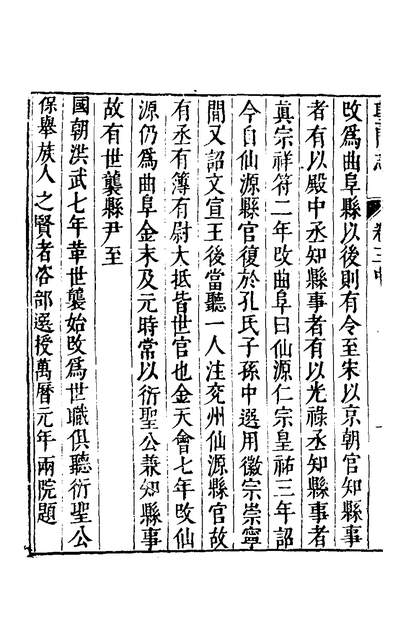 闕里志 卷三中
改爲曲阜縣以後則有令至宋以京朝官知縣事
者有以殿中丞知縣事者有以光祿丞知縣事者
眞宗祥符二年改曲阜曰仙源仁宗皇祐三年詔
今自仙源縣官復於孔氏子孫中選用徽宗崇寧
間又詔文宣王後當聽一人注兖州仙源縣官故
有丞有簿有尉大抵皆世官也金天會七年改仙
源仍爲曲阜金末及元時常以衍聖公兼知縣事
故有世襲縣尹至
國朝洪武七年革世襲始改爲世職俱聽衍聖公
保舉族人之賢者咨部選授萬曆元年兩院題